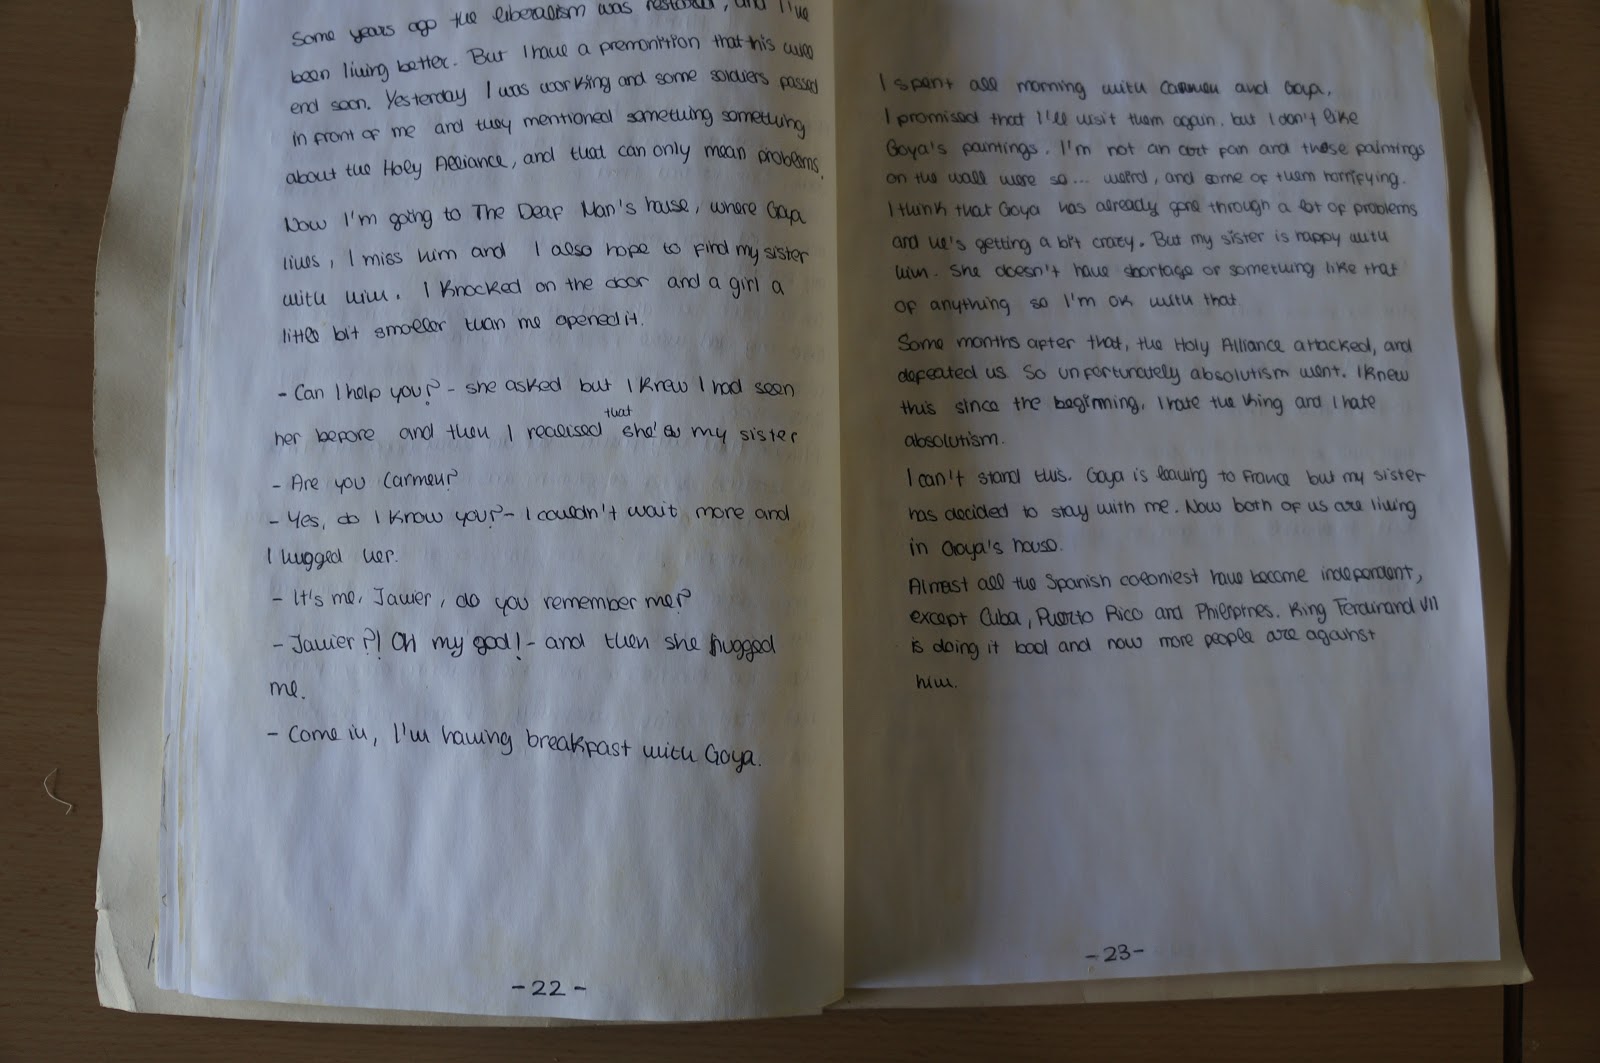 Some years ago the liberalism was restored, and I've
been living better. But I have a premonition that this will
end soon. Yesterday I was working and some soldiers passed
in front of me and they mentioned something something
about the Holy Alliance, and that can only mean problems.
Now I'm going to The Deaf Man's house, where Goya
lives, I miss him and I also hope to find my sister
with him. I knocked on the door and a girl a
little bit smaller than me opened it.
- Can I help you? - she asked but I knew I had seen
her before and then I realised that she's my sister
- Are you Carmen?
- Yes, do I know you? - I couldn't wait more and
I hugged her.
- It's me, Javier, do you remember me?
- Javier?! Oh my god! - and then she hugged
me.
- Come in, I'm having breakfast with Goya.
- 22 -
I spent all morning with Carmen and Goya,
I promised that I'll visit them again, but I don't like
Goya's paintings. I'm not an art fan and those paintings
on the wall were so... weird, and some of them horrifying.
I think that Goya has already gone through a lot of problems
and he's getting a bit crazy. But my sister is happy with
him. She doesn't have shortage or something like that
of anything so I'm ok with that.
Some months after that, the Holy Alliance attacked, and
defeated us. So unfortunately absolutism went. I knew
this since the beginning, I hate the king and I hate
absolutism.
I can't stand this. Goya is leaving to France but my sister
has decided to stay with me. Now both of us are living
in Goya's house.
Almost all the Spanish coloniest have become independent,
except Cuba, Puerto Rico and Philipines. King Ferdinand VII
is doing it bad and now more people are against
him.
- 23 -